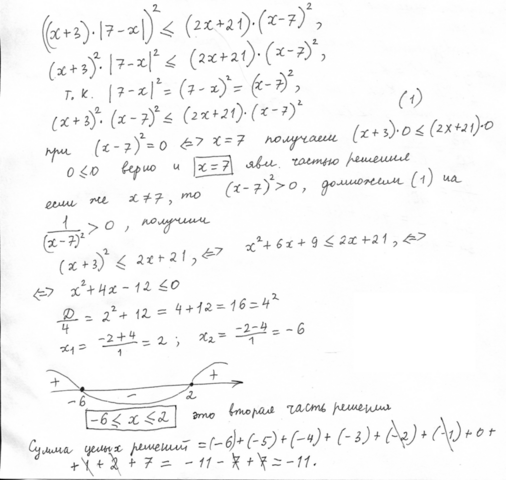 ((x+3)·|7-x|)² ≤ (2x+21)·(x-7)²,
(x+3)²·|7-x|² ≤ (2x+21)·(x-7)²,
т.к. |7-x|² = (7-x)² = (x-7)²,
(x+3)²·(x-7)² ≤ (2x+21)·(x-7)² (1)
при (x-7)²=0 <=> x=7 получаем (x+3)·0 ≤ (2x+21)·0
0≤0 верно и x=7 явл. частью решения
если же x≠7, то (x-7)²>0, домножим (1) на
1/(x-7)² > 0, получим
(x+3)² ≤ 2x+21, <=> x²+6x+9 ≤ 2x+21, <=>
<=> x²+4x-12 ≤ 0
D/4 = 2²+12 = 4+12 = 16 = 4²
x₁ = (-2+4)/1 = 2; x₂ = (-2-4)/1 = -6
+ - +
-6 2
-6 ≤ x ≤ 2 это вторая часть решения
Сумма целых решений = (-6)+(-5)+(-4)+(-3)+(-2)+(-1)+0+
+1+2+7 = -11-7+7 = -11.